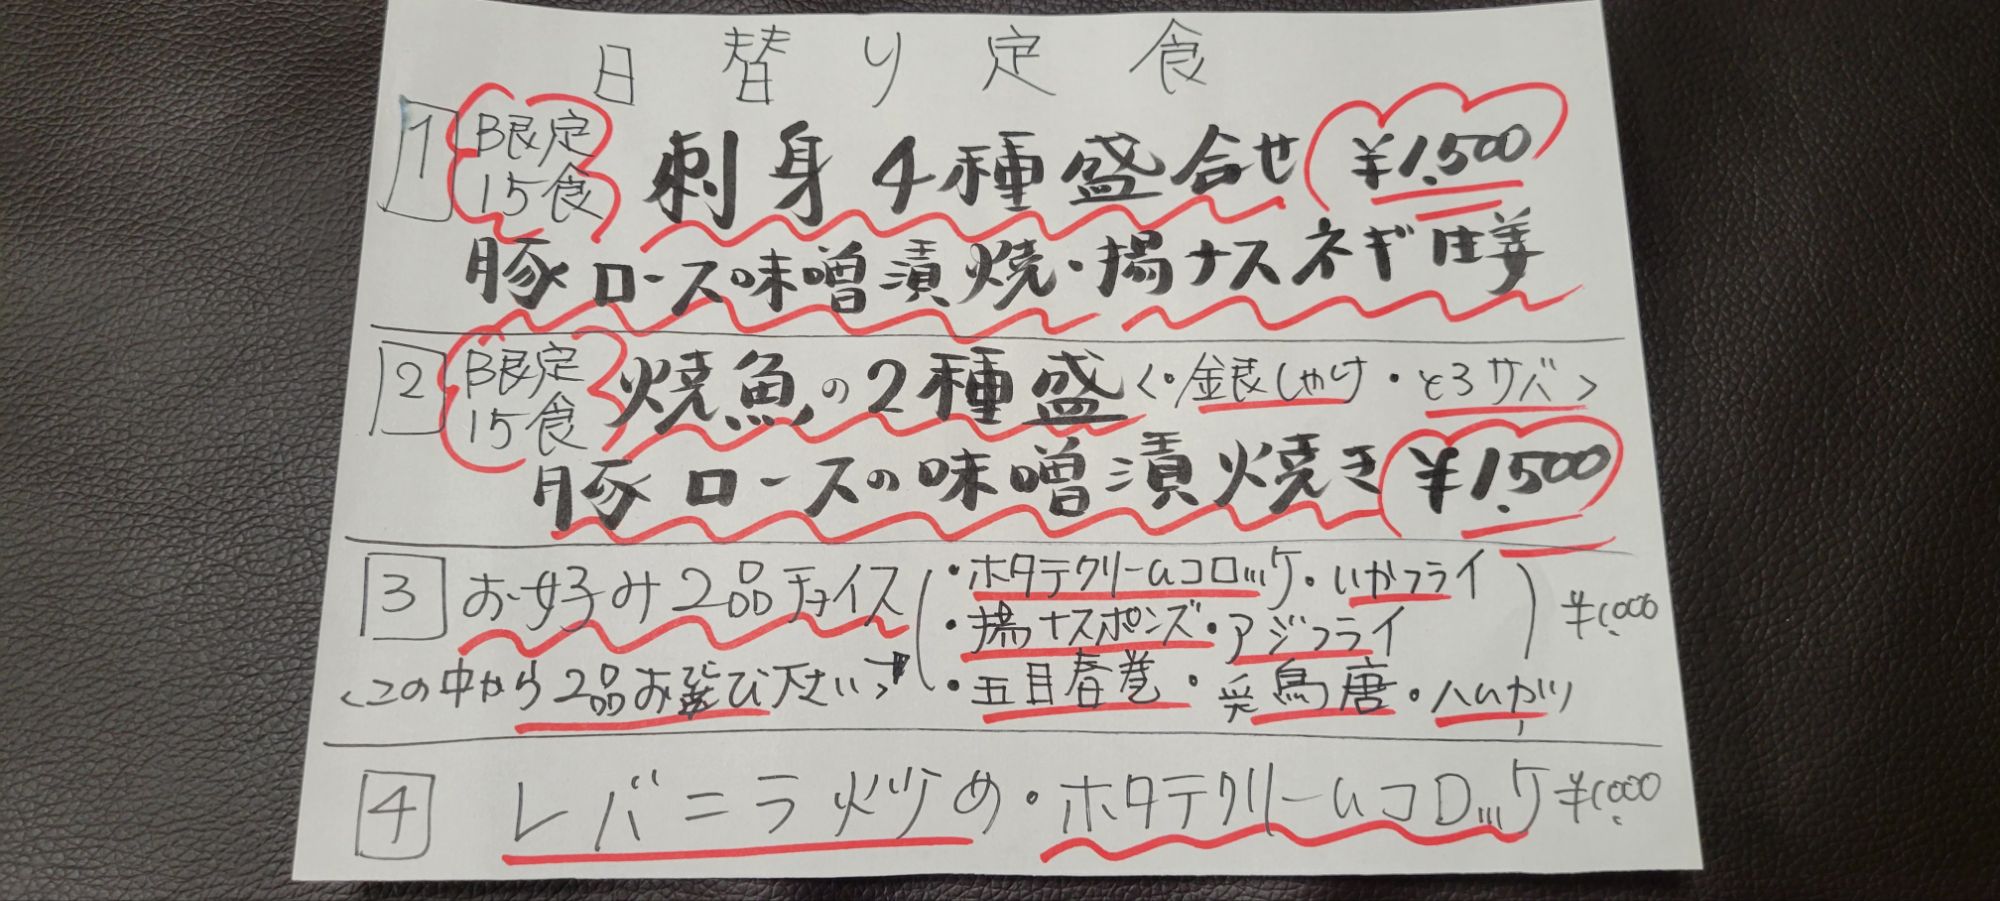 日替り定食
1 限定15食 刺身4種盛合せ ¥1,500
豚ロース味噌漬焼・揚ナスネギ生姜
2 限定15食 焼魚の2種盛 <・銀しゃけ・とろサバ>
豚ロースの味噌漬焼き ¥1,500
3 お好み2品チョイス
<この中から2品お選び下さい>
・ホタテクリームコロッケ・いかフライ
・揚ナスポンズ・アジフライ
・五目春巻・鳥唐・ハムカツ
¥1,000
4 レバニラ炒め・ホタテクリームコロッケ ¥1,000